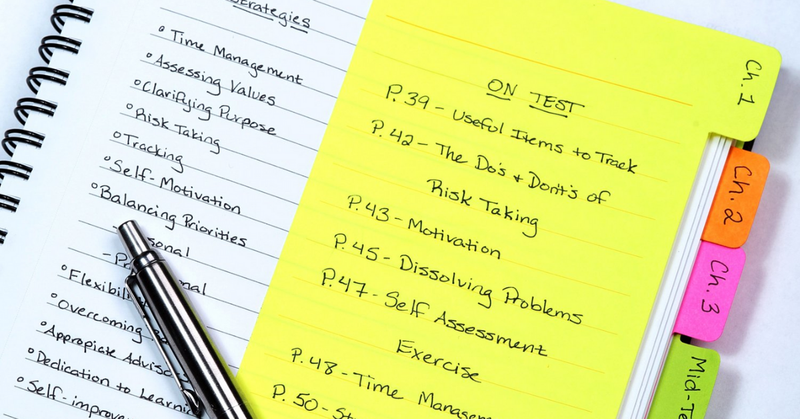 Strategies
° Time Management
° Assessing Values
° Clarifying Purpose
° Risk Taking
° Tracking
° Self-Motivation
° Balancing Priorities
° Overcoming
° Appropiate
° Dedication to
° Self-
ON TEST
P. 39 - Useful Items to Track
P. 42 - The Do's + Dont's of
Risk Taking
P. 43 - Motivation
P. 45 - Dissolving Problems
P. 47 - Self Assessment
Exercise
P. 48 - Time
P. 50 -
Ch. 1
Ch. 2
Ch. 3